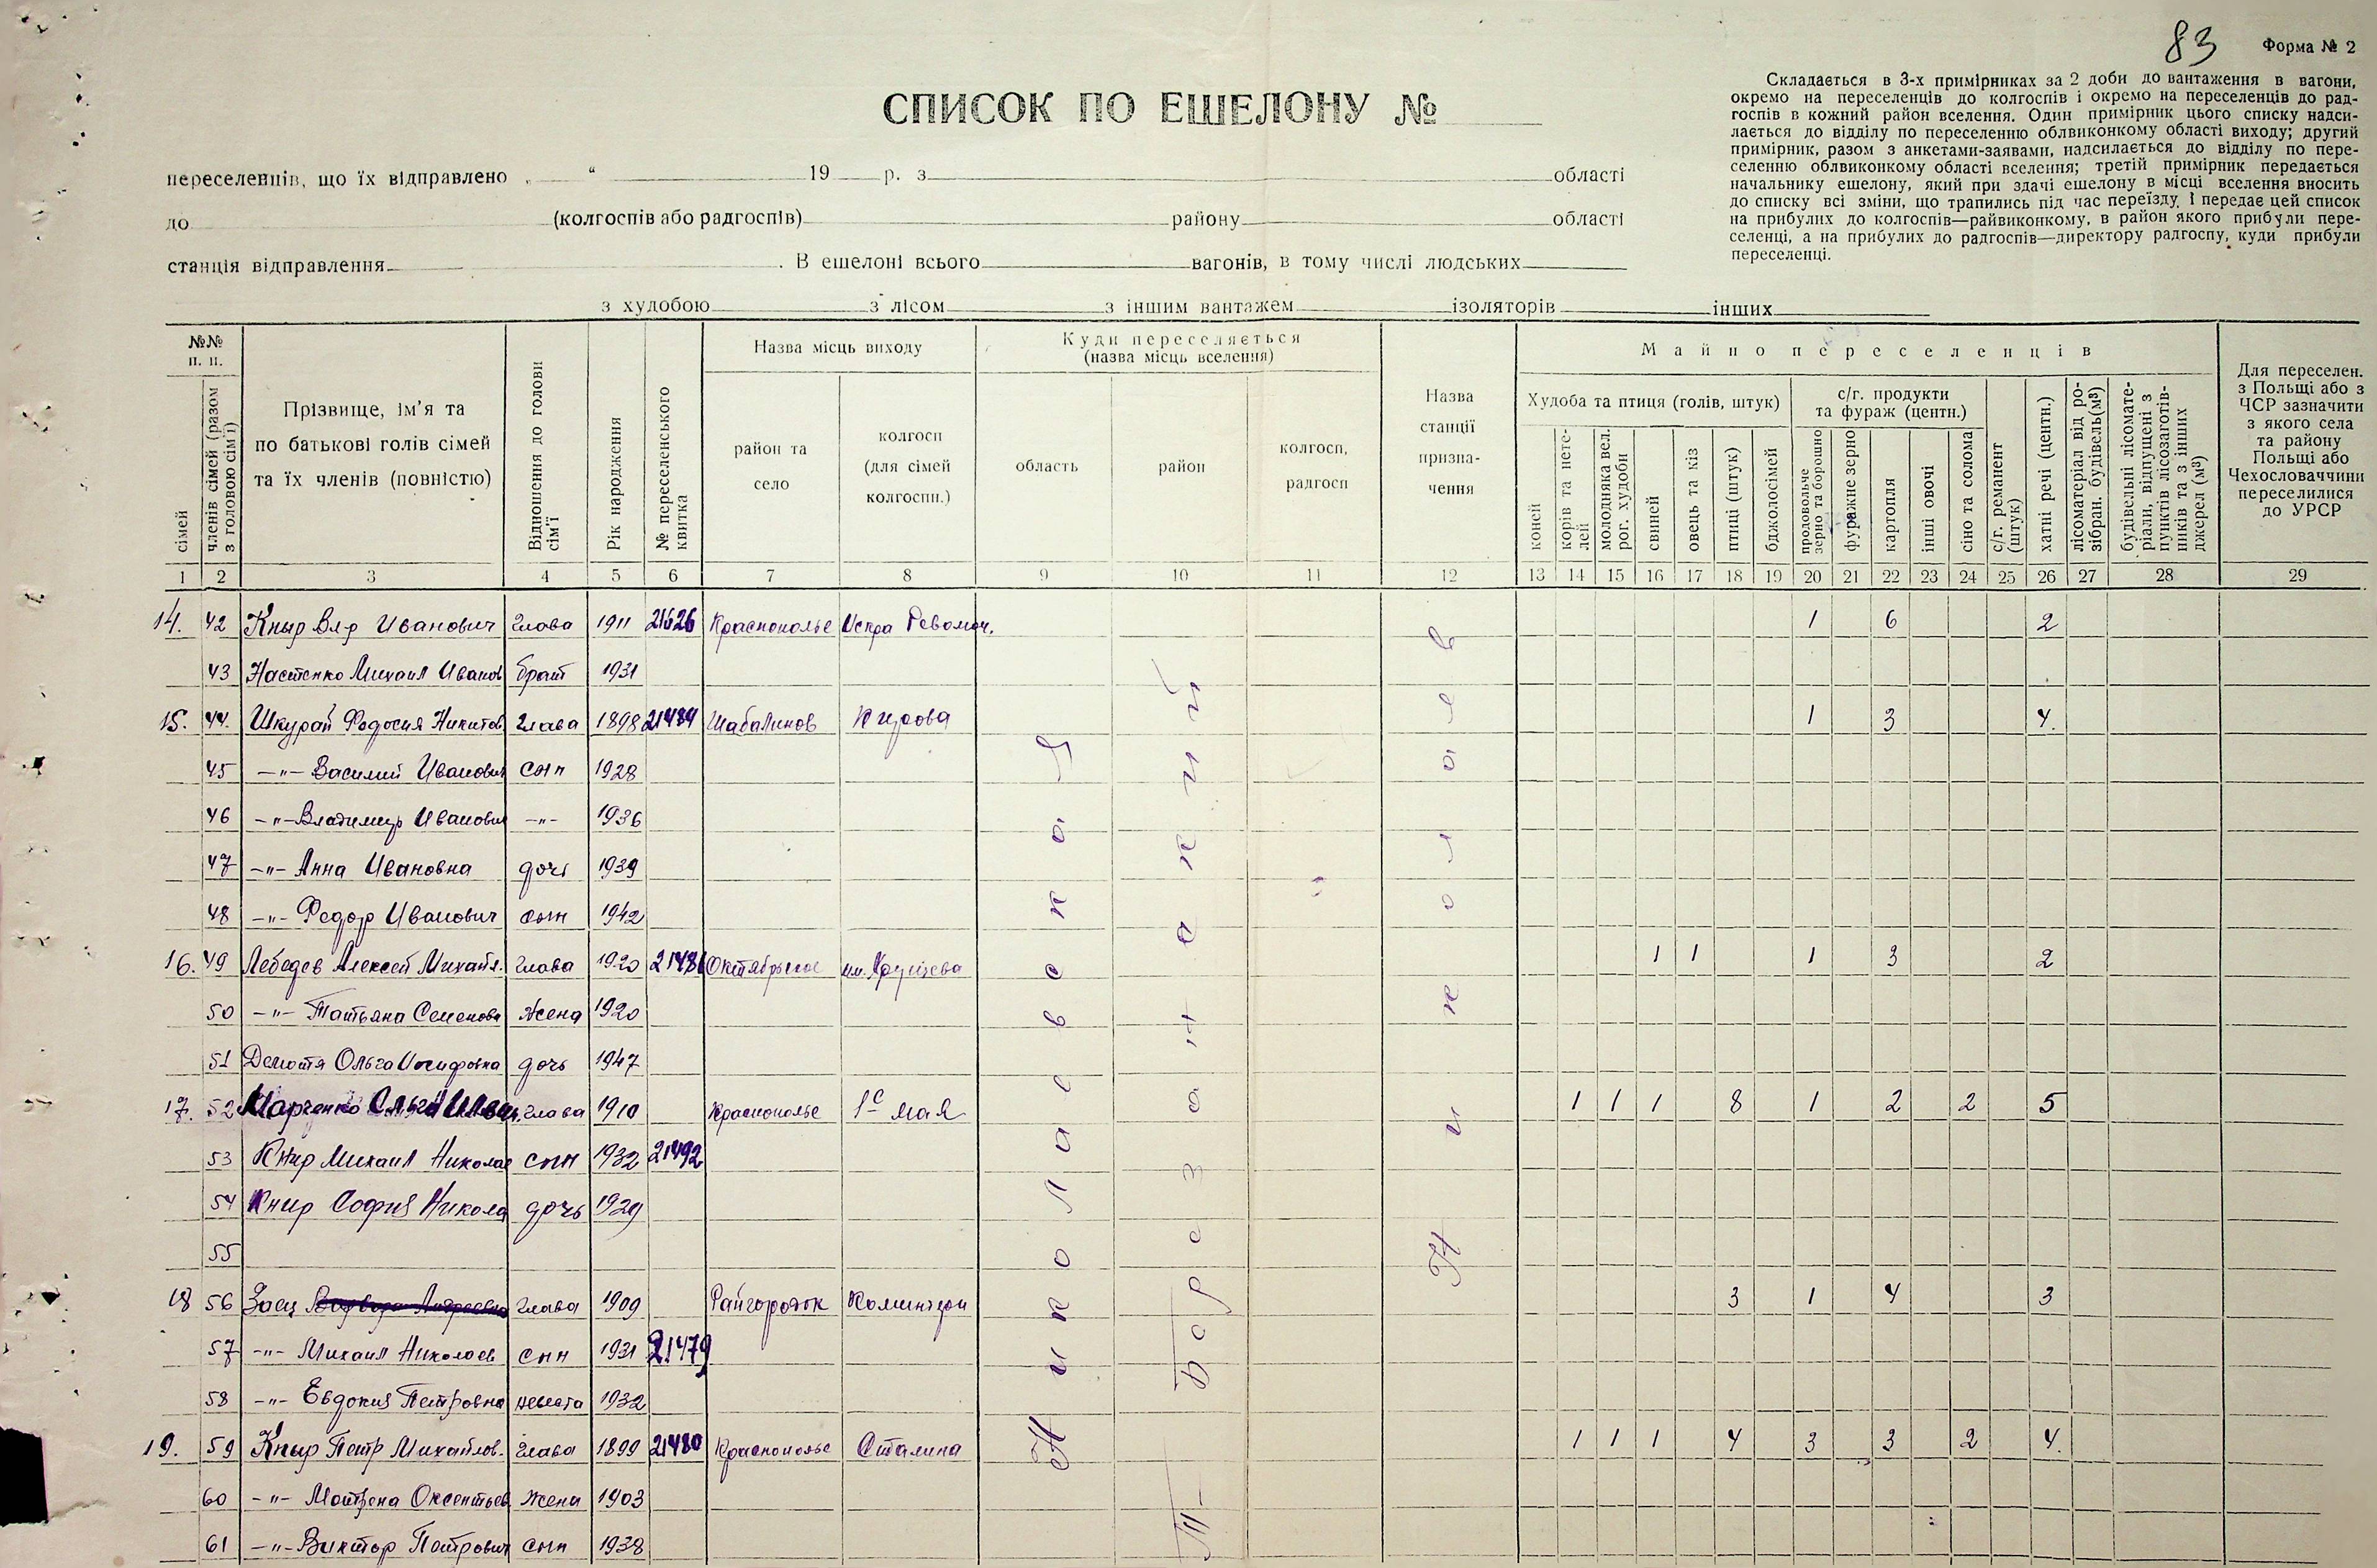 83 Форма № 2
Складається в 3-х примірниках за 2 доби до вантаження в вагони,
окремо на переселенців до колгоспів і окремо на переселенців до рад-
госпів в кожний район вселення. Один примірник цього списку надси-
лається до відділу по переселенню облвиконкому області виходу; другий
примірник, разом з анкетами-заявами, надсилається до відділу по пере-
селенню облвиконкому області вселення; третій примірник передається
начальнику ешелону, який при здачі ешелону в місці вселення вносить
до списку всі зміни, що трапились під час переїзду, і передає цей список
на прибулих до колгоспів—райвиконкому, в район якого прибули пере-
селенці, а на прибулих до радгоспів—директору радгоспу, куди прибули
переселенці.
СПИСОК ПО ЕШЕЛОНУ №
переселенців, що їх відправлено „ “ 19 р. з області
до (колгоспів або радгоспів) району області
станція відправлення . В ешелоні всього вагонів, в тому числі людських
з худобою з лісом з іншим вантажем ізоляторів інших
№№ п. п.
сімей
членів сімей (разом з головою сім'ї)
Прізвище, ім'я та
по батькові голів сімей
та їх членів (повністю)
Відношення до голови сім'ї
Рік народження
№ переселенського квитка
Назва місць виходу
район та
село
колгосп
(для сімей
колгоспн.)
Куди переселяється
(назва місць вселення)
область
район
колгосп,
радгосп
Назва
станції
призна-
чення
Майно переселенців
Худоба та птиця (голів, штук)
коней
корів та нете-
лей
молодняка вел.
рог. худоби
свиней
овець та кіз
птиці (штук)
бджолосімей
с/г. продукти
та фураж (центн.)
продовольче
зерно та борошно
фуражне зерно
картопля
інші овочі
сіно та солома
с/г. реманент
(штук)
хатні речі (центн.)
лісоматеріал від ро-
зібран. будівель(м³)
будівельні лісомате-
ріали, відпущені з
пунктів лісозаготів-
ників та з інших
джерел (м³)
Для переселен.
з Польщі або з
ЧСР зазначити
з якого села
та району
Польщі або
Чехословаччини
переселилися
до УРСР
1 2 3 4 5 6 7 8 9 10 11 12 13 14 15 16 17 18 19 20 21 22 23 24 25 26 27 28 29
14. 42 Кныр Вл-р Иванович глава 1911 21626 Краснополье Искра Революч. 1 6 2
43 Настенко Михаил Иванов брат 1931
15. 44. Шкурай Федосия Никитов глава 1898 21484 Шабалинов Кирова 1 3 4.
45 -"- Василий Иванович сын 1928
46 -"- Владимир Иванович -"- 1936
47 -"- Анна Ивановна дочь 1939
48 -"- Федор Иванович сын 1942
16. 49 Лебедев Алексей Михайл. глава 1920 21486 Октябрьское им. Хрущева 1 1 1 3 2
50 -"- Татьяна Семенова жена 1920
51 Ольга Иосифовна дочь 1947
17. 52 Марченко Ольга глава 1910 Краснополье 1е мая 1 1 1 8 1 2 2 5
53 Книр Михаил Николае сын 1932 21492
54 Книр София Никола дочь 1929
55
18 56 Заец Варвара Андреевна глава 1909 Райгородок Коминтерн 3 1 4 3
57 -"- Михаил Николаев сын 1931 21479
58 -"- Евдокия Петровна невеста 1932
19. 59 Кныр Петр Михайлов. глава 1899 21480 Краснополье Сталина 1 1 1 4 3 3 2 4.
60 -"- Мотрена Оксентьев жена 1903
61 -"- Виктор Петрович сын 1938
Николаевская
Т-Березанский
Николаев